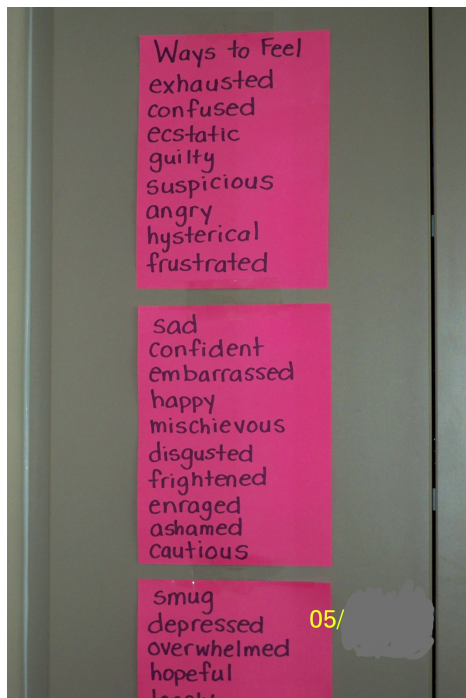 Ways to Feel
exhausted
confused
ecstatic
guilty
suspicious
angry
hysterical
frustrated
sad
confident
embarrassed
happy
mischievous
disgusted
frightened
enraged
ashamed
cautious
smug
depressed
overwhelmed
hopeful
05/